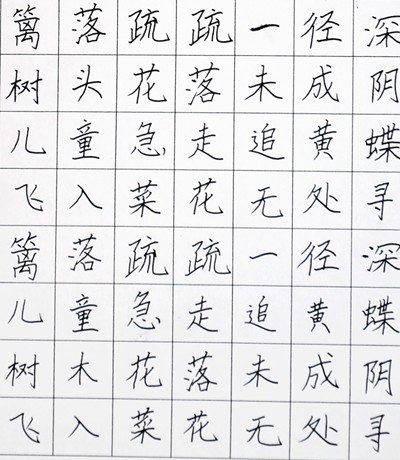 篱落疏疏一径深
树头花落未成阴
儿童急走追黄蝶
飞入菜花无处寻
篱落疏疏一径深
儿童急走追黄蝶
树木花落未成阴
飞入菜花无处寻